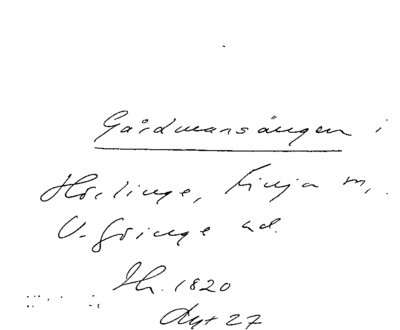 Gårdmansängen i
Hörlinge, Finja m,
V. Göinge hd.
Sk. 1820
Akt 27